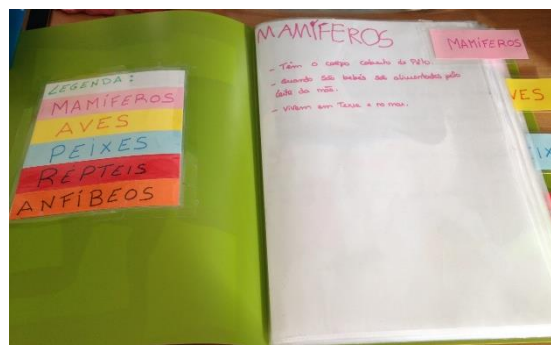 LEGENDA:
MAMÍFEROS
AVES
PEIXES
RÉPTEIS
ANFÍBEOS
MAMÍFEROS
- Têm o corpo coberto de Pêlo.
- quando são bebés são alimentados pelo
leite da mãe.
- Vivem em Terra e no mar.
MAMÍFEROS
VES
IX